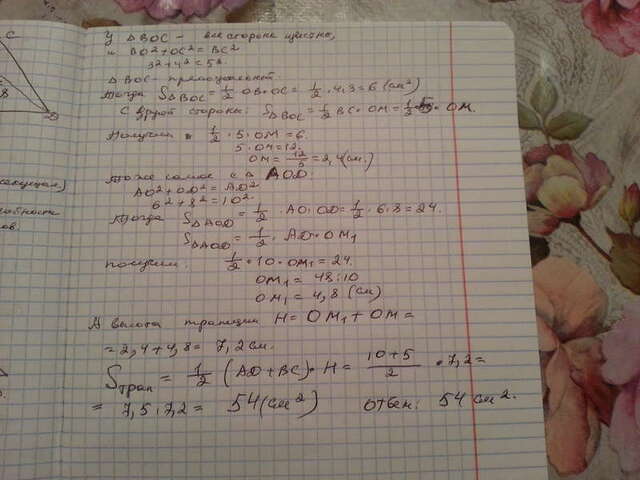 C
8
D
секущая,)
добности
ов.
У ΔBOC - все стороны известны,
и BO²+OC²=BC²
3²+4²=5².
ΔBOC - прямоугольный.
Тогда S_ΔBOC = 1/2 OB·OC = 1/2·4·3=6 (см²)
С другой стороны: S_ΔBOC = 1/2 BC·OM = 1/2·5·OM.
Получим 1/2·5·OM=6.
5·OM=12.
OM=12/5=2,4(см.)
Тоже самое с Δ AOD:
AO²+OD²=AD²
6²+8²=10².
Тогда S_ΔAOD = 1/2·AO·OD=1/2·6·8=24.
S_ΔAOD = 1/2·AD·OM₁
получим: 1/2·10·OM₁=24.
OM₁=48:10
OM₁=4,8 (см)
А высота трапеции H=OM₁+OM=
=2,4+4,8=7,2см.
S_трап = 1/2 (AD+BC)·H = (10+5)/2 ·7,2=
= 7,5·7,2 = 54(см²) Ответ: 54 см².